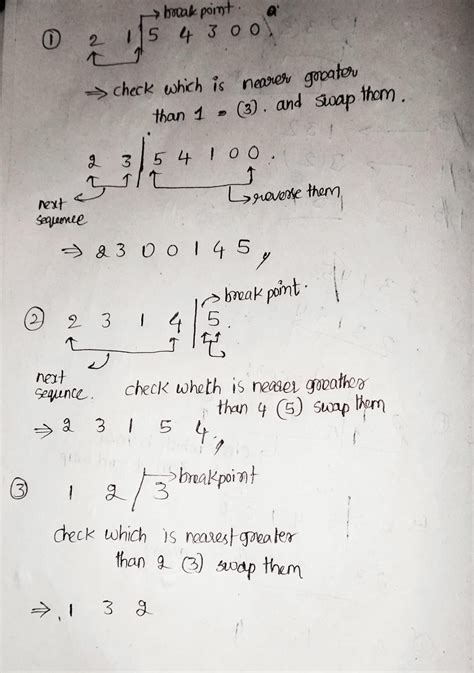 → break point.
① 2 1 | 5 4 3 0 0.
⇒ check which is nearer greater
than 1 = (3). and swap them.
2 3 | 5 4 1 0 0.
next
sequence
↳ reverse them
⇒ 2 3 0 0 1 4 5,
→ break point.
② 2 3 1 4 | 5.
next
sequnce.
check wheth is neaser greather
than 4 (5) swap them
⇒ 2 3 1 5 4,
→ breakpoint
③ 1 2 / 3
check which is nearest greater
than 2 (3) swap them
⇒ 1 3 2